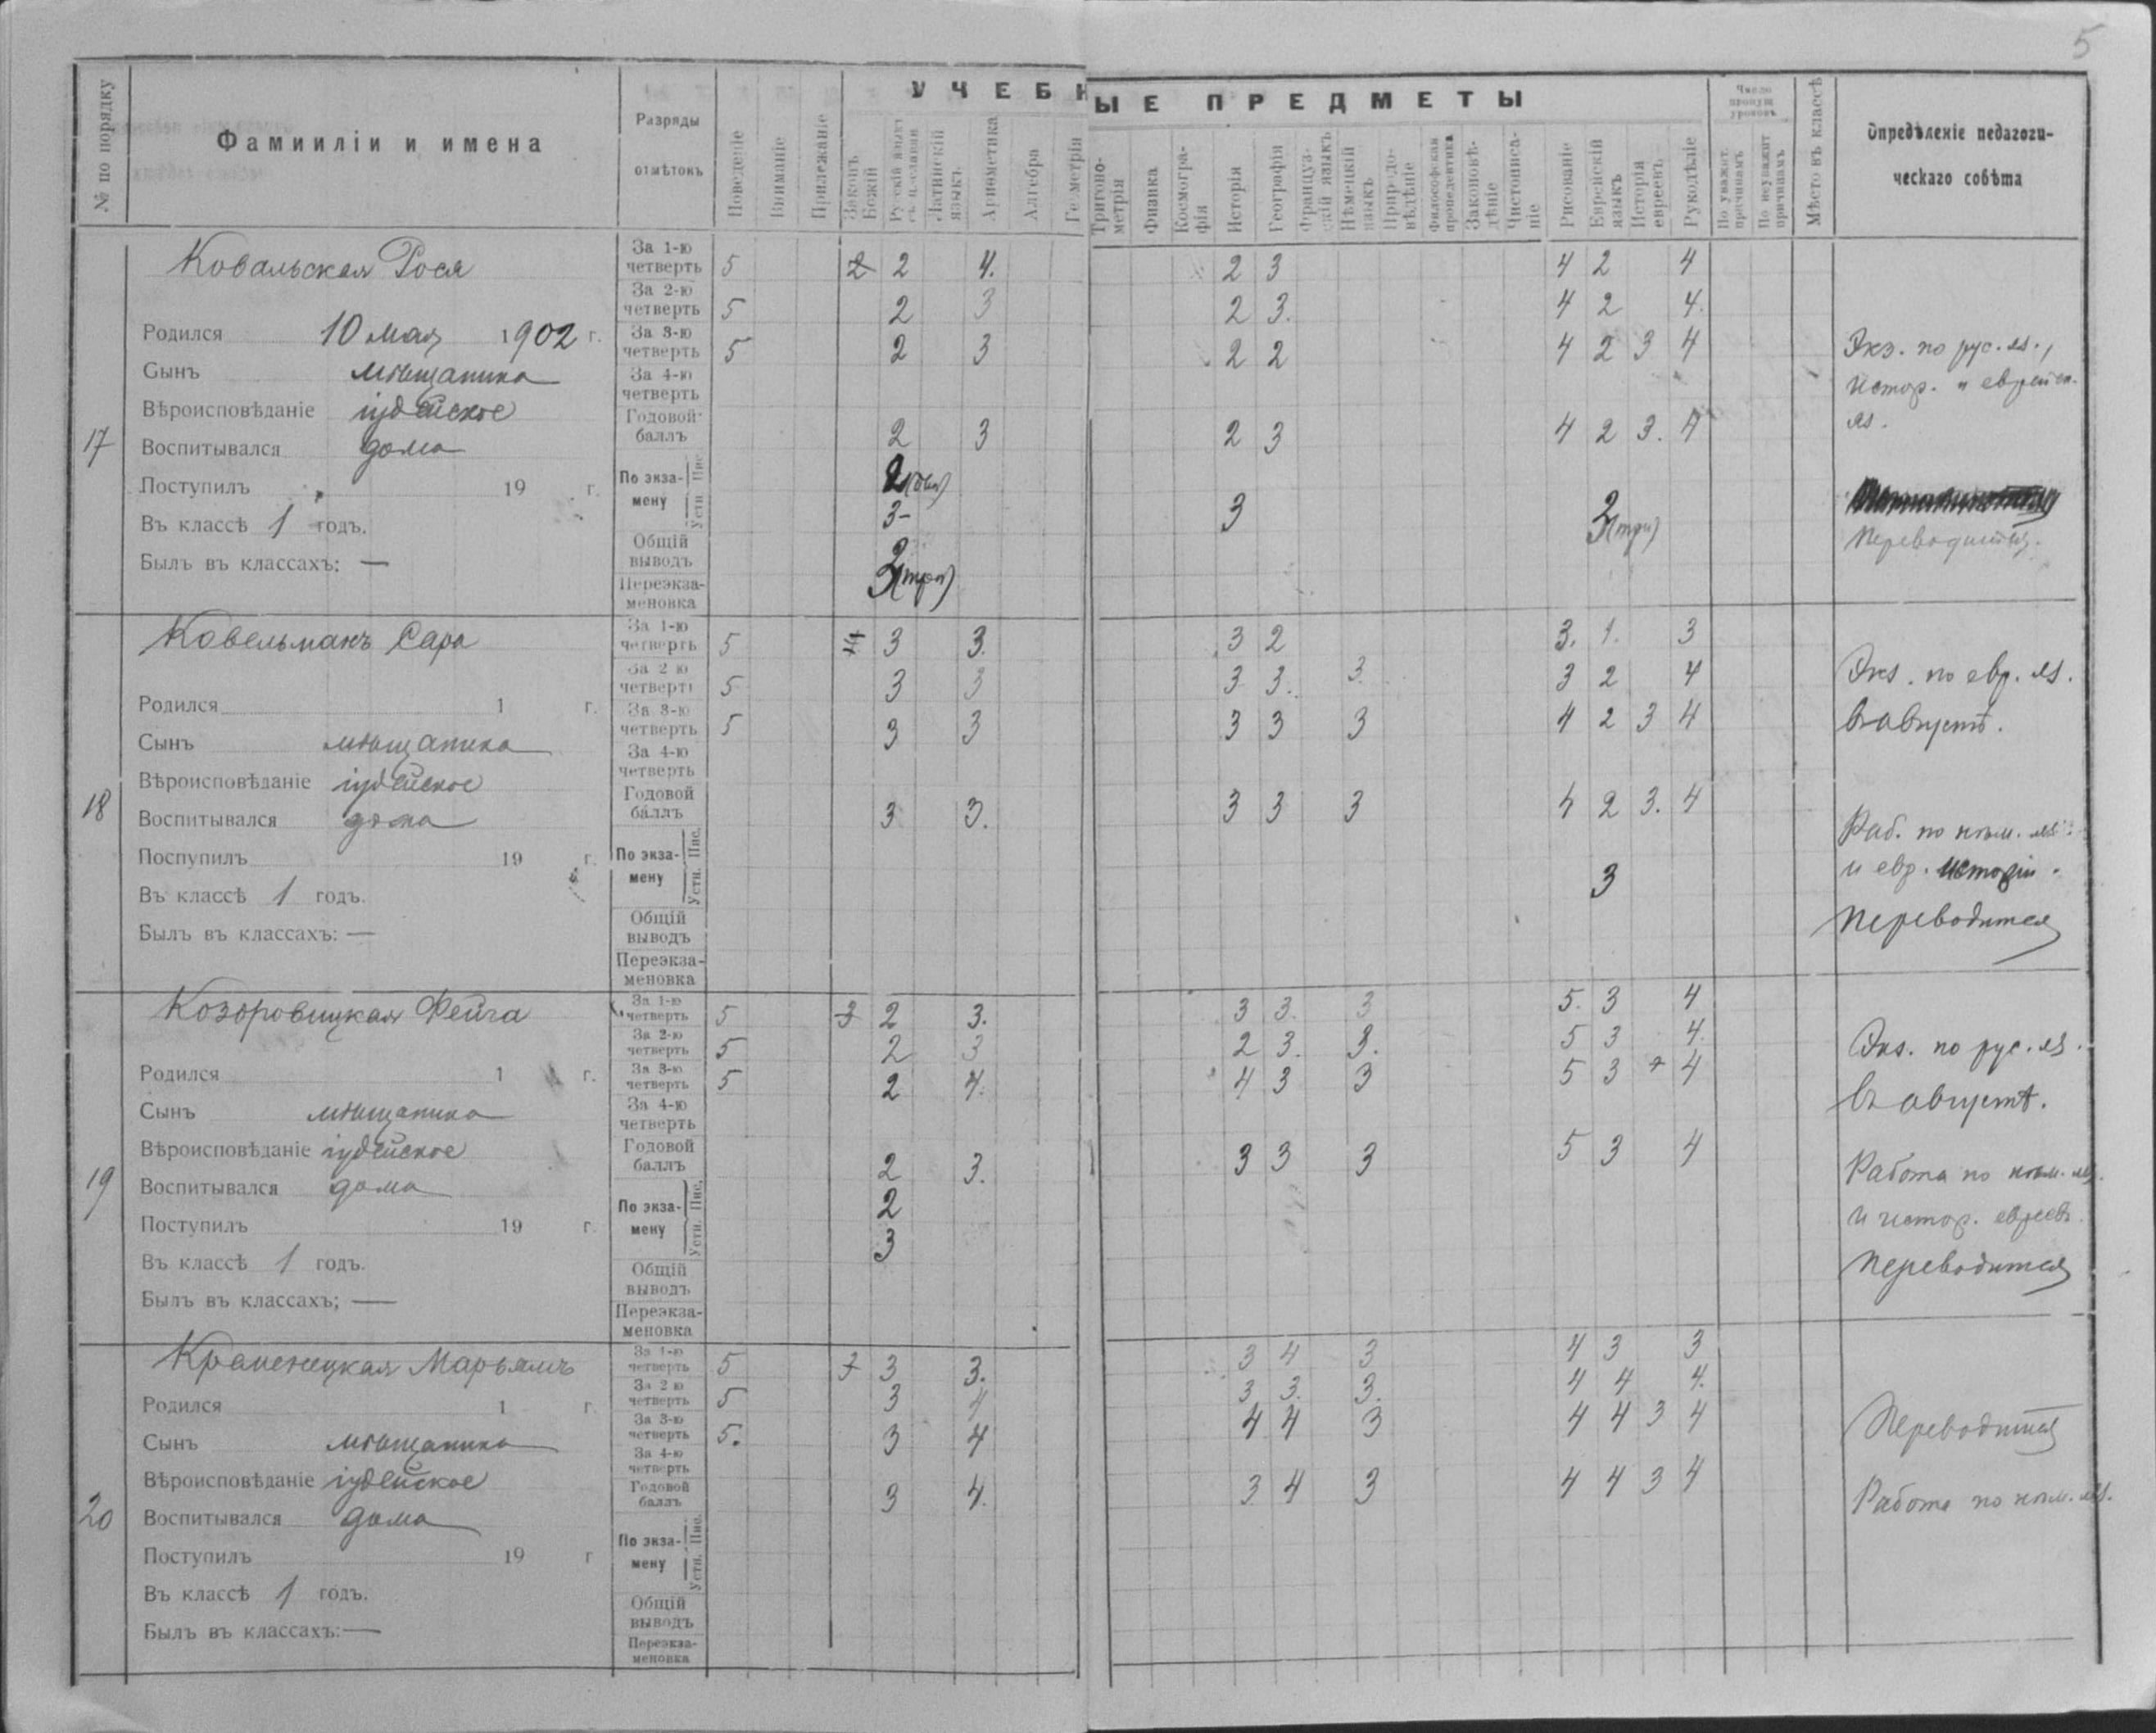 5
№ по порядку
Фамииліи и имена
Разряды
отмѣтокъ
Поведеніе
Вниманіе
Прилежаніе
УЧЕБНЫЕ ПРЕДМЕТЫ
Законъ
Божій
Русскій языкъ
Латинскій
языкъ
Ариөметика
Алгебра
Геометрія
Тригоно-
метрія
Физика
Космогра-
фія
Исторія
Географія
Француз-
скій языкъ
Нѣмецкій
языкъ
Природо-
вѣдѣніе
Философская
пропедевтика
Законовѣ-
дѣніе
Чистописа-
ніе
Рисованіе
Еврейскій
языкъ
Исторія
евреевъ
Рукодѣліе
Число
пропущ
уроковъ
По уважит.
причинамъ
По неуважит
причинамъ
Мѣсто въ классѣ
Опредѣленіе педагоги-
ческаго совѣта
17
Ковальская Рося
Родился 10 мая 1902 г.
Сынъ мѣщанина
Вѣроисповѣданіе іудейское
Воспитывался дома
Поступилъ 19 г.
Въ классѣ 1 годъ.
Былъ въ классахъ: —
За 1-ю четверть 5 2 2 4. 2 3 4 2 4
За 2-ю четверть 5 2 3 2 3. 4 2 4.
За 3-ю четверть 5 2 3 2 2 4 2 3 4
За 4-ю четверть
Годовой баллъ 2 3 2 3 4 2 3. 4
По экза-
мену
Пис.
Устн
2
3- 3 3 (три)
Общій выводъ 3 (три)
Переэкза-
меновка
Экз. по рус. яз.,
истор. и еврейск.
яз.
Переводится.
18
Ковельманъ Сара
Родился 1 г.
Сынъ мѣщанина
Вѣроисповѣданіе іудейское
Воспитывался дома
Поспупилъ 19 г.
Въ классѣ 1 годъ.
Былъ въ классахъ: —
За 1-ю четверть 5 4 3 3. 3 2 3. 1. 3
За 2 ю четверть 5 3 3 3 3. 3. 3 2 4
За 3-ю четверть 5 3 3 3 3 3 4 2 3 4
За 4-ю четверть
Годовой баллъ 3 3. 3 3 3 4 2 3. 4
По экза-
мену
Пис.
Устн.
3
Общій выводъ
Переэкза-
меновка
Экз. по евр. яз.
въ августѣ.
Раб. по нѣм. яз.
и евр. исторіи.
Переводится
19
Козоровицкая Фейга
Родился 1 г.
Сынъ мѣщанина
Вѣроисповѣданіе іудейское
Воспитывался дома
Поступилъ 19 г.
Въ классѣ 1 годъ.
Былъ въ классахъ; —
За 1-ю четверть 5 3 2 3. 3 3. 3 5. 3 4
За 2-ю четверть 5 2 3 2 3. 3. 5 3 4.
За 3-ю четверть 5 2 4. 4 3 3 5 3 4
За 4-ю четверть
Годовой баллъ 2 3. 3 3 3 5 3 4
По экза-
мену
Пис.
Устн.
2
3
Общій выводъ
Переэкза-
меновка
Экз. по рус. яз.
въ августѣ.
Работа по нѣм. яз.
и истор. евреевъ.
Переводится
20
Кременецкая Марьямъ
Родился 1 г.
Сынъ мѣщанина
Вѣроисповѣданіе іудейское
Воспитывался дома
Поступилъ 19 г
Въ классѣ 1 годъ.
Былъ въ классахъ: —
За 1-ю четверть 5 3 3 3. 3 4 3 4 3 3
За 2 ю четверть 5 3 4 3 3. 3. 4 4 4.
За 3-ю четверть 5. 3 4 4 4 3 4 4 3 4
За 4-ю четверть
Годовой баллъ 3 4. 3 4 3 4 4 3 4
По экза-
мену
Пис.
Устн.
Общій выводъ
Переэкза-
меновка
Переводится
Работа по нѣм. яз.